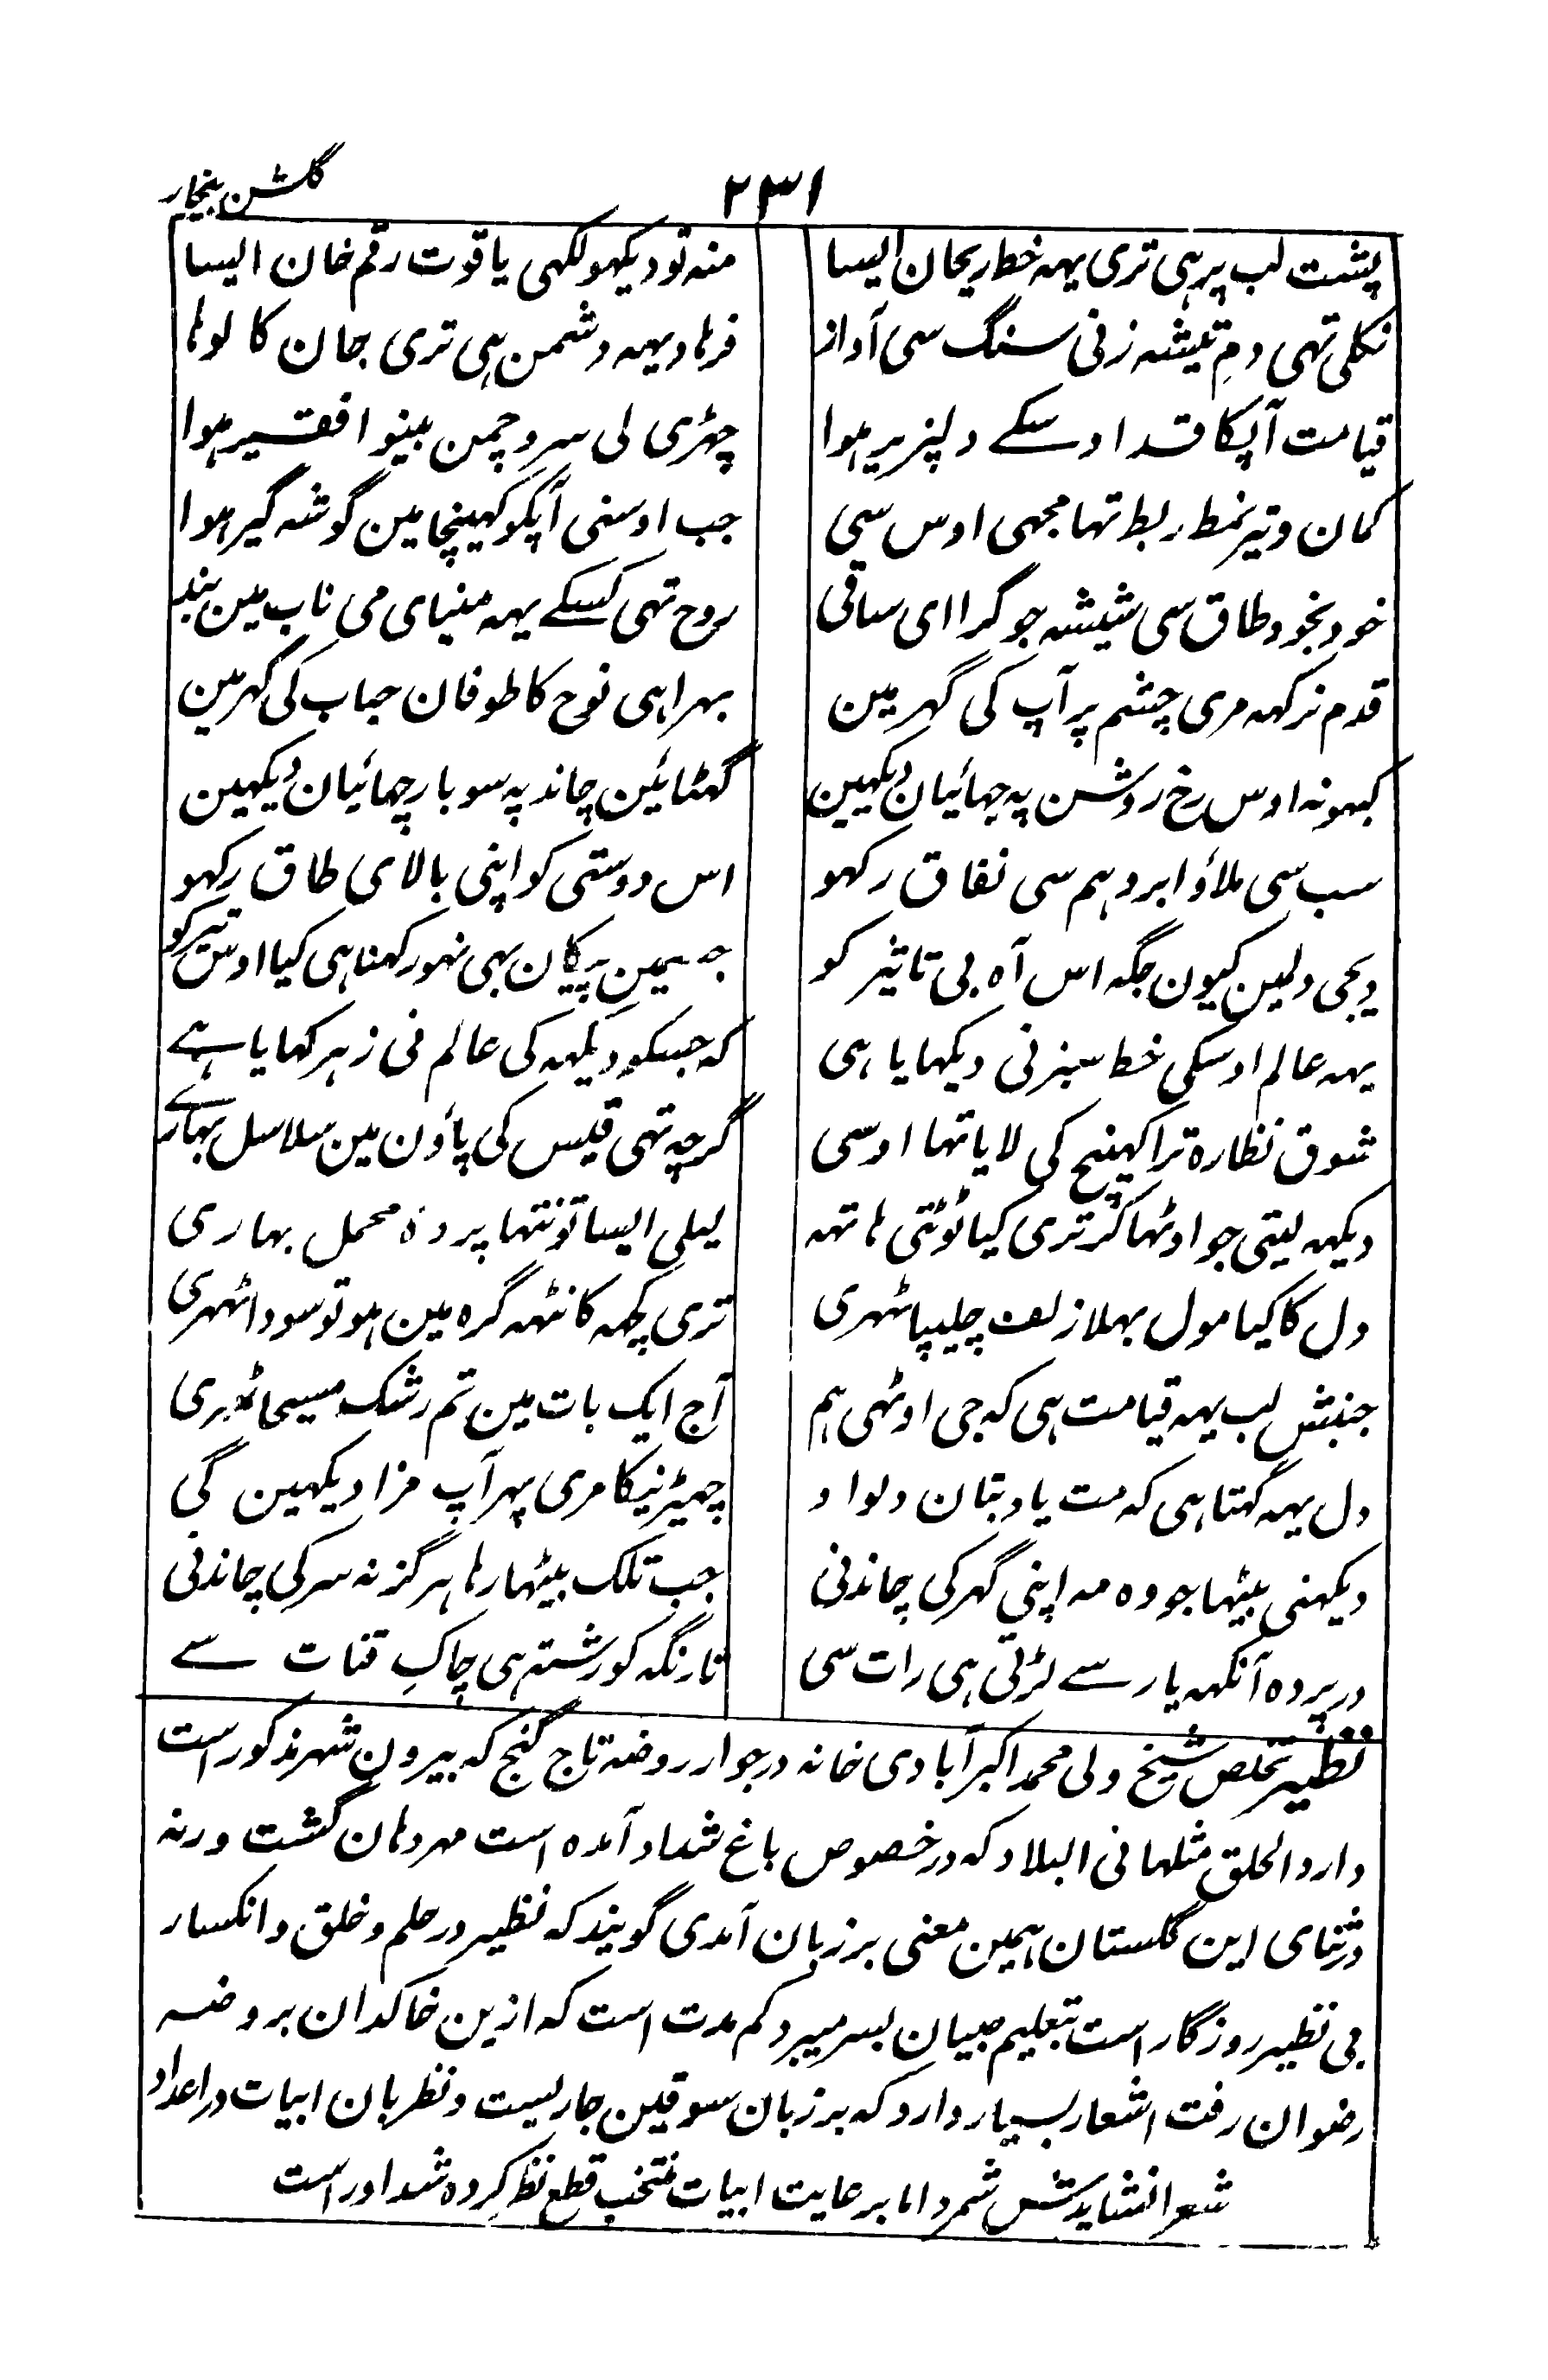 گلشن بیخار
۲۳۱
پشت لب پر ہی تری یہہ خط ریحان ایسا منہ تو دیکہو لکہی یاقوت رقم خان ایسا
نکلی تہی دمِ تیشہ زنی سنگ سی آواز فرہاد یہہ دشمن ہی تری جان کا لوہا
قیامت آپکا قد اوسکے دلپزیر ہوا چہڑی لی سرو چمن بینوا فقیر ہوا
کمان و تیر نمط ربط تہا مجہی اوس سی جب اوسنی آپکو کہینچا مین گوشہ گیر ہوا
خود بخود طاق سی شیشہ جو گرا ای ساقی روح تہی کسکے یہہ مینای می ناب مین بند
قدم نرکہہ مری چشم پر آپ کی گہر مین بہرا ہی نوح کا طوفان حباب کی گہر مین
کبہو نہ اوس رخ روشن پہ چہائیان دیکہین گہٹائین چاند پہ سو بار چہائیان دیکہین
سب سی ملاؤ ابرو ہم سی نفاق رکہو اس دوستی کو اپنی بالای طاق رکہو
دیجی دلمین کیون جگہ اس آہ بی تاثیر کو جسمین پیکان بہی نہو رکہنا ہی کیا اوس تیر کو
یہہ عالم اوسکی خط سبز نی دیکہایا ہی کہ جسکو دیکہہ کی عالم نی زہر کہایا ہے
شوق نظارہ ترا کہینچ کی لایا تہا اوسی گرچہ تہی قیس کی پاؤن مین سلاسل بہارے
دیکہہ لیتی جو اوٹہا کر تری کیا ٹوٹتی ہاتہہ لیلی ایسا تو نتہا پردۂ محمل بہاری
دل کا کیا مول بہلا زلف چلیپا ٹہری تری کچہہ کانٹہہ گرہ مین ہو تو سودا ٹہری
جنبش لب یہہ قیامت ہی کہ جی اوٹہی ہم آج ایک بات مین تم رشک مسیحا ٹہری
دل یہہ کہتا ہی کہ مت یاد بتان دلواو چہیڑنیکا مری پہر آپ مزا دیکہین گی
دیکہنی بیٹہا جو وہ مہ اپنی گہر کی چاندنی جب تلک بیٹہا رہا ہرگز نہ سرکی چاندنی
در پردہ آنکہہ یار سے لڑتی ہی رات سی تارنگہ کو رشتہ ہی چاکِ قنات سے
نظیر تخلص شیخ ولی محمد اکبرآبادی خانہ در جوار روضہ تاج گنج کہ بیرون شہر مذکور است
دارد لم یخلق مثلها فی البلاد کہ در خصوص باغ شداد آمدہ است مہر دہان گشت ورنہ
در ثنای این گلستان ہمین معنی بر زبان آمدی گویند کہ نظیر در حلم و خلق و انکسار
بی نظیر روزگار است بتعلیم صبیان بسر میبرد کم مدت است کہ ازین خاکدان بروضہ
رضوان رفت اشعار بسیار دارد کہ بر زبان سوقین جاریست و نظر بان ابیات در اعداد
شعرا نشایدش شمرد اما برعایت ابیات منتخب قطع نظر کردہ شد اوراست